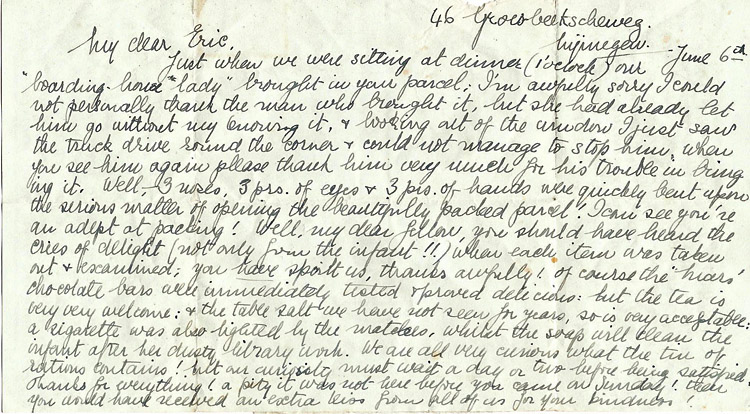 46 Groesbeekscheweg.
Nijmegen. June 6th
My dear Eric,
Just when we were sitting at dinner (1 o'clock) our
"boarding-house "lady" brought in your parcel; I'm awfully sorry I could
not personally thank the man who brought it, but she had already let
him go without my knowing it, & looking out of the window I just saw
the truck drive round the corner & could not manage to stop him; when
you see him again please thank him very much for his trouble in bring
ing it. Well - 3 noses, 3 prs. of eyes & 3 prs. of hands were quickly bent upon
the serious matter of opening the beautifully packed parcel! I can see you're
an adept at packing! Well, my dear fellow, you should have heard the
cries of delight (not only from the infant!!) when each item was taken
out & examined; you have spoilt us, thanks awfully! of course the 'Mars'
chocolate bars were immediately tasted & proved delicious: but the tea is
very very welcome; & the table salt we have not seen for years, so is very acceptable;
a sigarette was also lighted by the matches, whilst the soap will clean the
infant after her dusty library work. We are all very curious what the tin of
rations contains! but our curiosity must wait a day or two before being satisfied.
Thanks for everything! a pity it was not here before you came on Sunday! then
you would have received an extra kiss from all of us for your kindness!